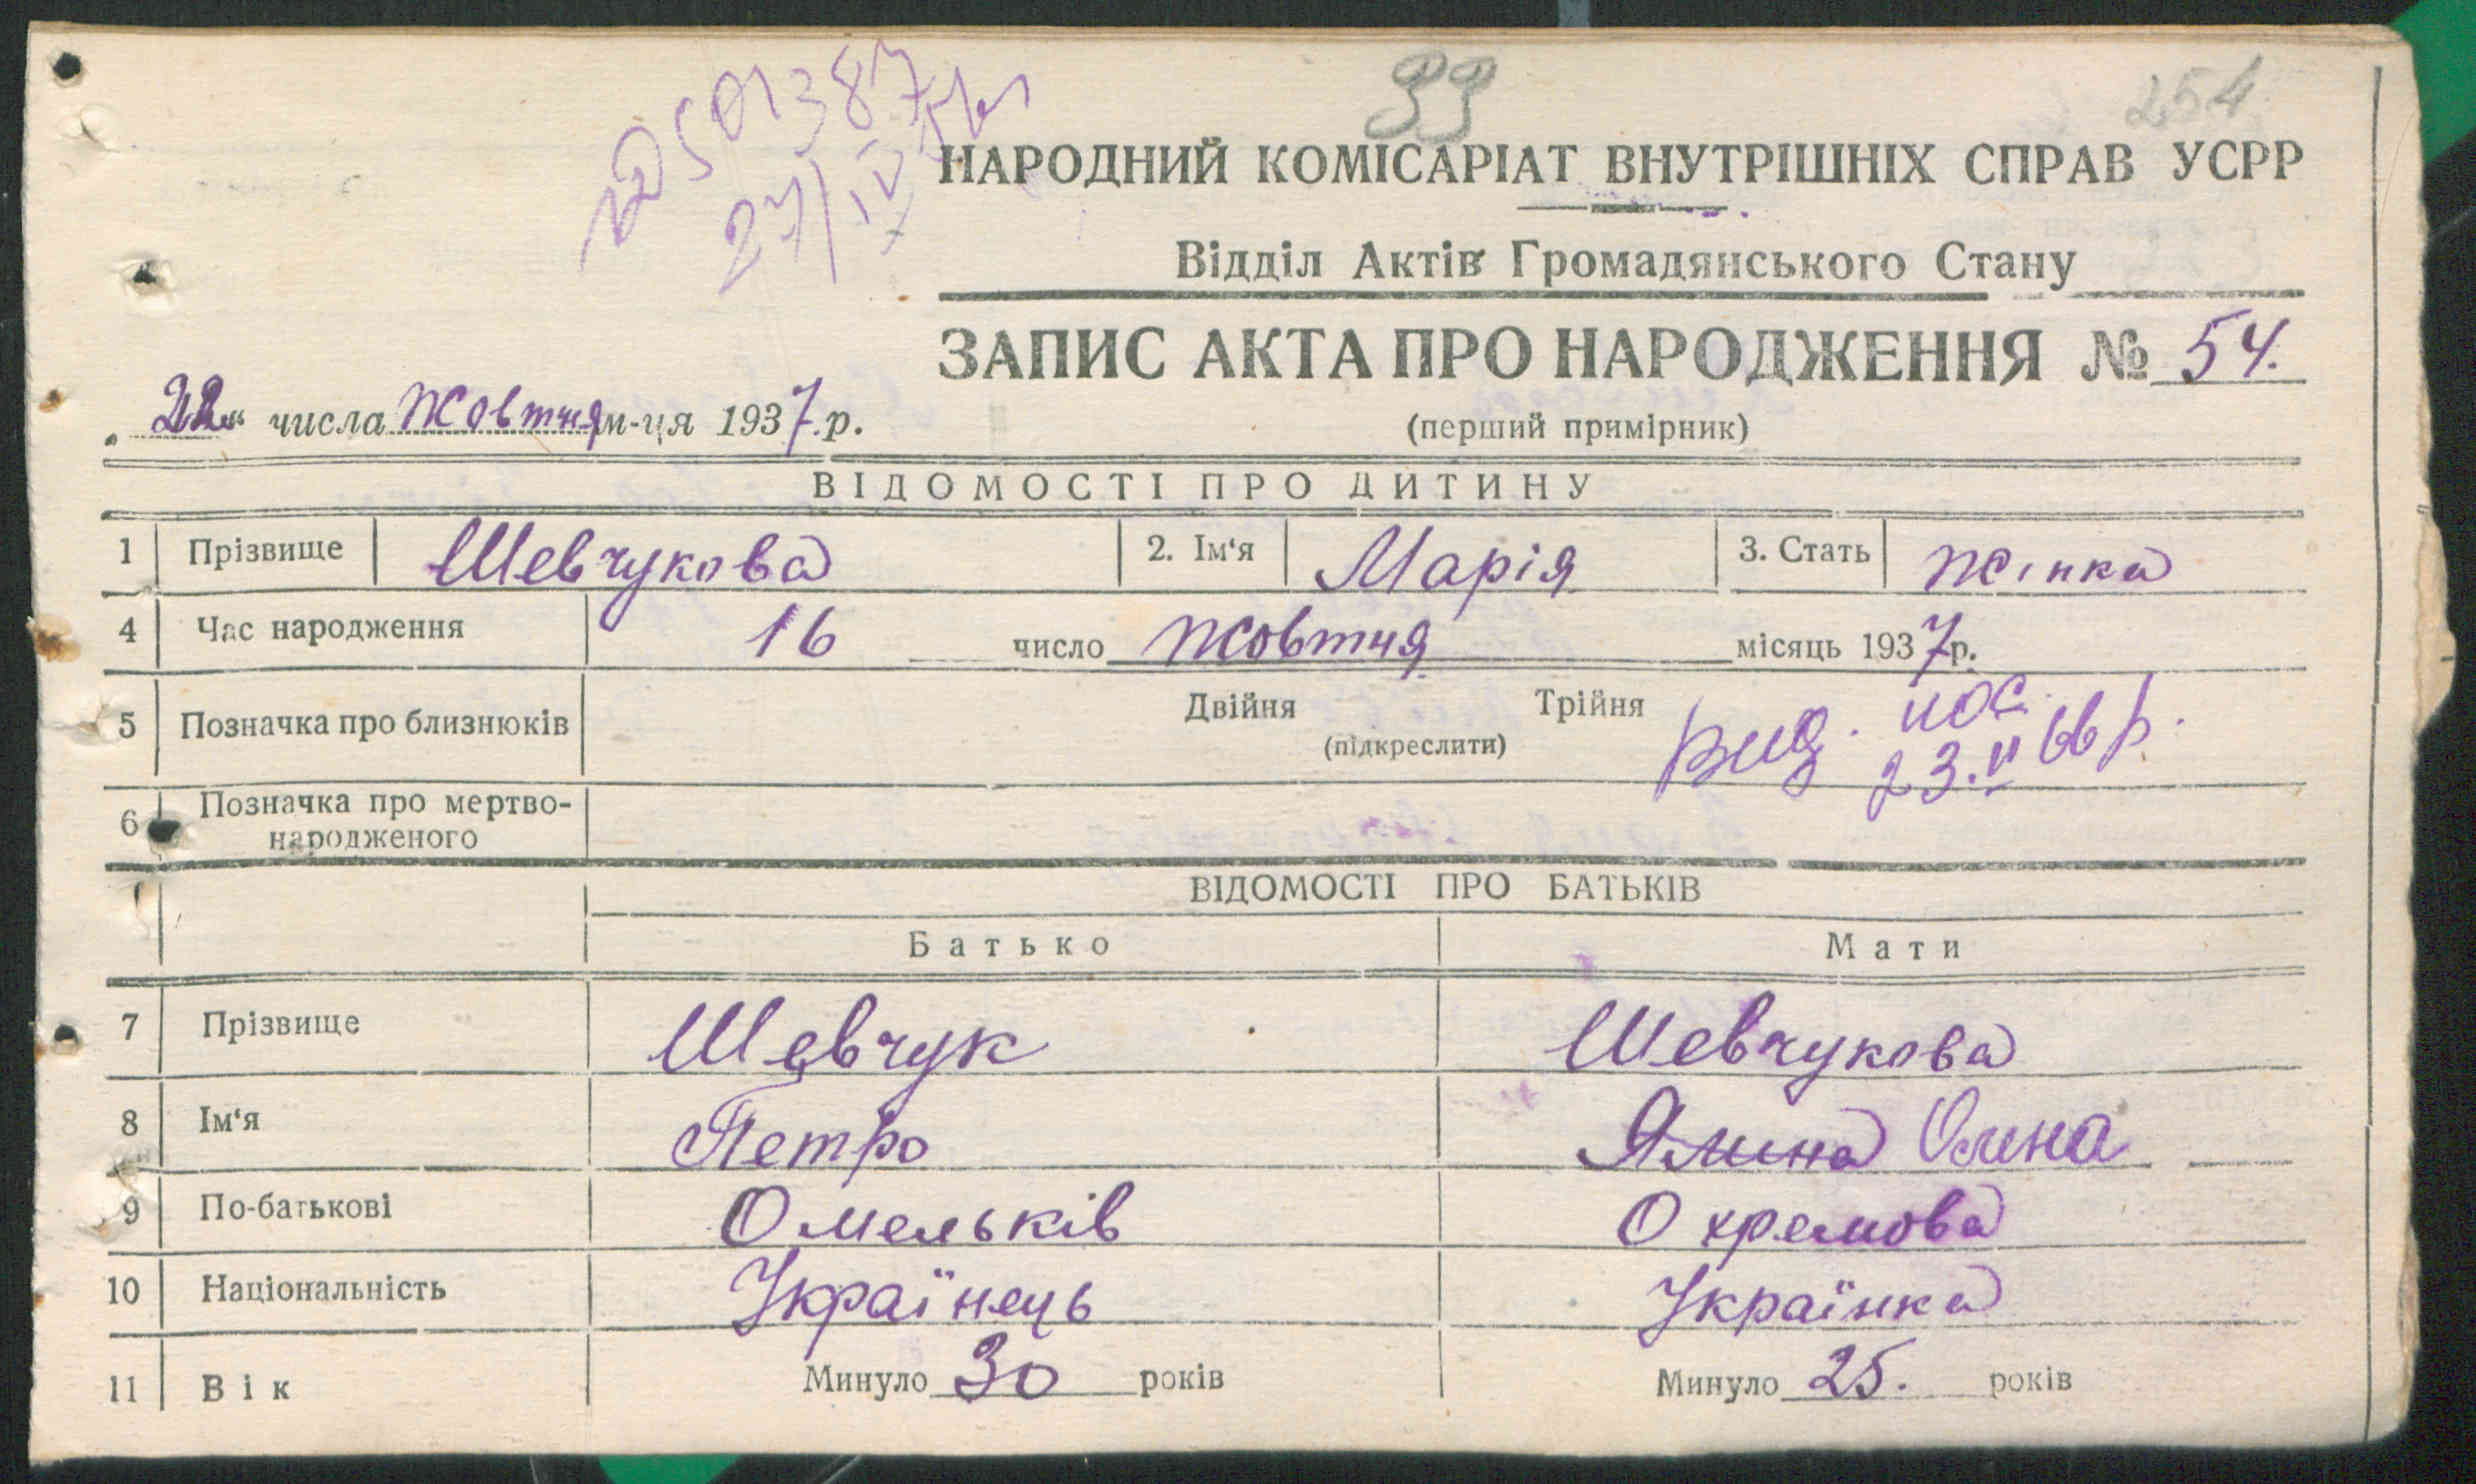 99
254
501387
27/IV
НАРОДНИЙ КОМІСАРІАТ ВНУТРІШНІХ СПРАВ УСРР
Відділ Актів Громадянського Стану
ЗАПИС АКТА ПРО НАРОДЖЕННЯ № 54.
(перший примірник)
„22“ числа Жовтня м-ця 1937 р.
ВІДОМОСТІ ПРО ДИТИНУ
1 Прізвище Шевчукова 2. Ім‘я Марія 3. Стать жінка
4 Час народження 16 число Жовтня місяць 1937 р.
5 Позначка про близнюків Двійня Трійня
(підкреслити)
вид. пос.
23.V 66 р.
6 Позначка про мертво-
народженого
ВІДОМОСТІ ПРО БАТЬКІВ
Батько Мати
7 Прізвище Шевчук Шевчукова
8 Ім‘я Петро Ялина Олена
9 По-батькові Омельків Охремова
10 Національність Українець Українка
11 Вік Минуло 30 років Минуло 25. років